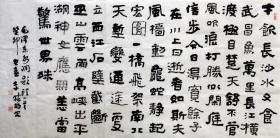 才飲長沙水又食
武昌魚萬里長江
橫渡極目楚天舒不管
風吹浪打勝似閒庭
信步今日得寬餘子
在川上曰逝者如斯夫
風檣動龜蛇靜起
宏圖一橋飛架南北
天塹變通途更
立西江石壁截斷
巫山雲雨高峽出平
湖神女應無恙當
驚世界殊
毛澤東